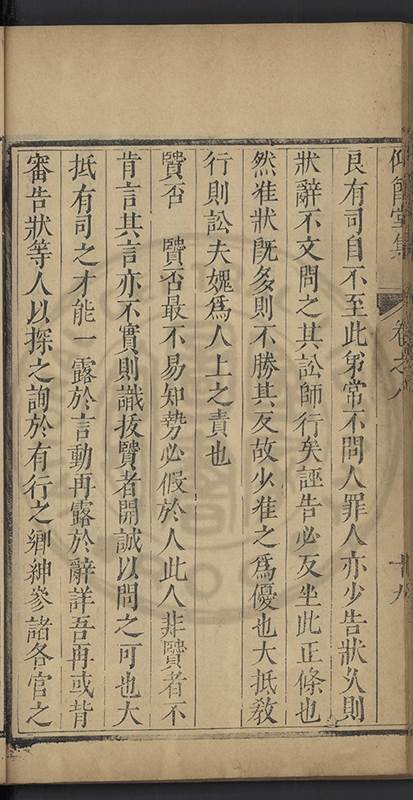 仰節堂集 卷之八 十九
良有司自不至此第常不問人罪人亦少告狀久則
狀辭不文問之其訟師行矣誣告必反坐此正條也
然准狀旣多則不勝其反故少准之爲優也大抵敎
行則訟夫媿爲人上之責也
賢否 賢否最不易知勢必假於人此人非賢者不
肯言其言亦不實則識拔賢者開誠以問之可也大
抵有司之才能一露於言動再露於辭詳吾再或背
審告狀等人以探之詢於有行之鄉紳參諸各官之